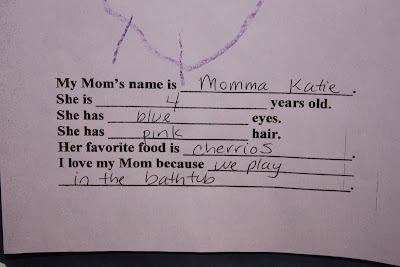 My Mom's name is Momma Katie.
She is 4 years old.
She has blue eyes.
She has pink hair.
Her favorite food is cherrios.
I love my Mom because we play
in the bathtub.